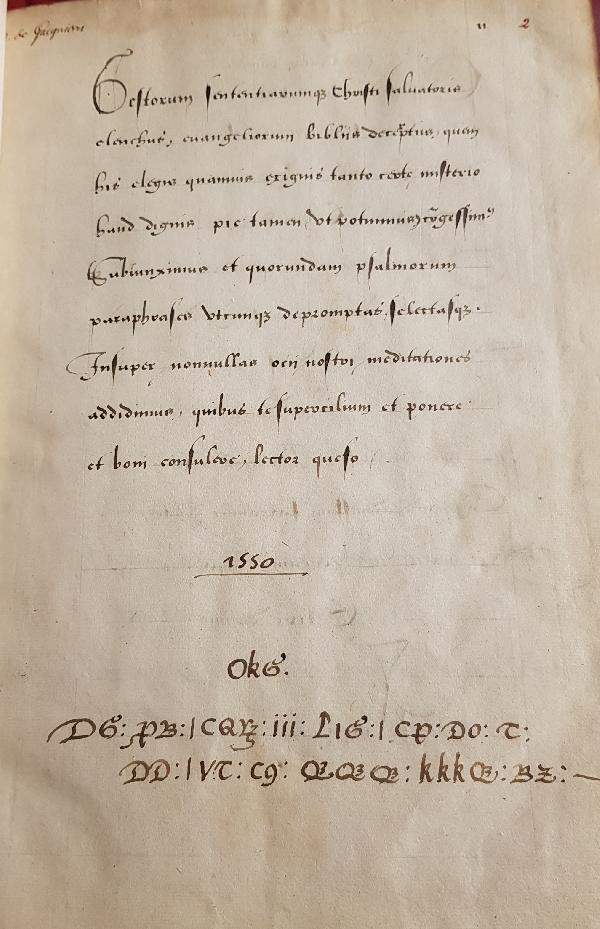 de Jacquieri
" 2
Gestorum sententiarumqз Christi saluatoris
elenchus, euangeliorum bibliis decerptus, quem
his elegis quamuis exiguis tanto certe misterio
haud dignis pie tamen vt potuimus, cōgessim⁹
Subiunximus et quorundam psalmorum
paraphrases vtcunqз depromptas, selectasqз.
Insuper nonnullas ocii nostri meditationes
addidimus, quibus te supercilium et ponere
et boni consulere, lector queso
1550
OkG.
DG: PB:| CQRꝫ: iii: LIG:| CP: DO: T:
DD:| VT: C9: Œ Œ Œ: kkk Œ: BZ: —